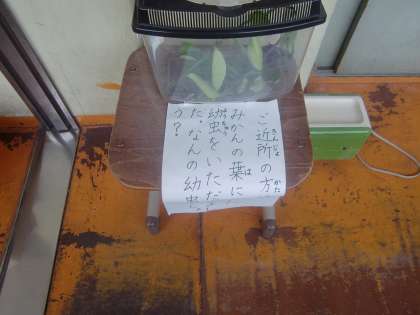 ご近所の方
みかんの葉に
幼虫をいただ
た。なんの幼虫
う?